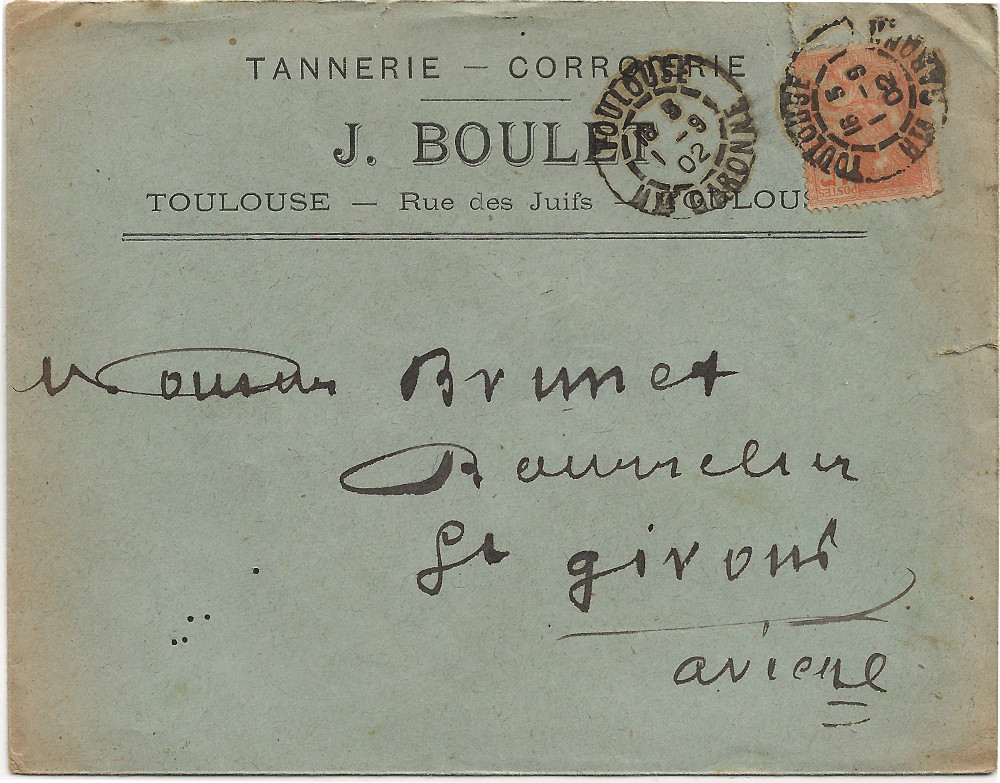 TANNERIE — CORROIERIE
J. BOULET
TOULOUSE — Rue des Juifs — TOULOUSE
TOULOUSE
Hte GARONNE
5 - 9
02
TOULOUSE
Hte GARONNE
15 5 - 9
02
POSTES
15
Monsieur Brunet
Bourrelier
St girons
ariege